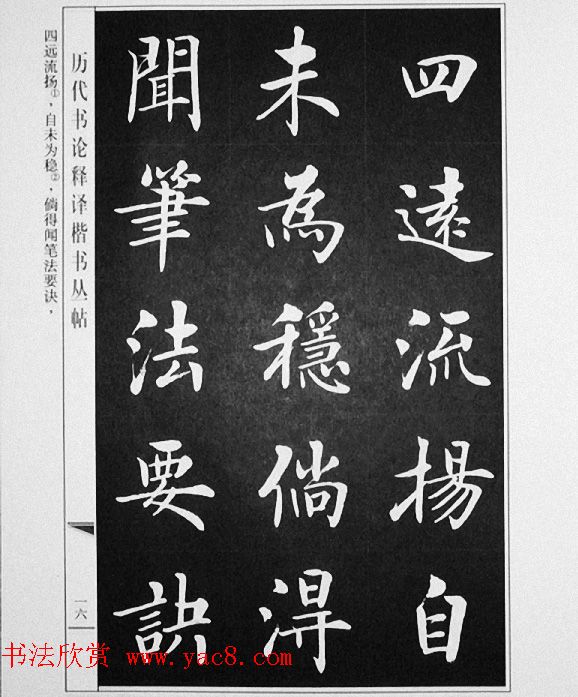 四遠流揚自
未為穩倘淂
聞筆法要訣
历代书论释译楷书丛帖
一六
四远流扬①，自未为稳②，倘得闻笔法要诀，
书法欣赏 www.yac8.com